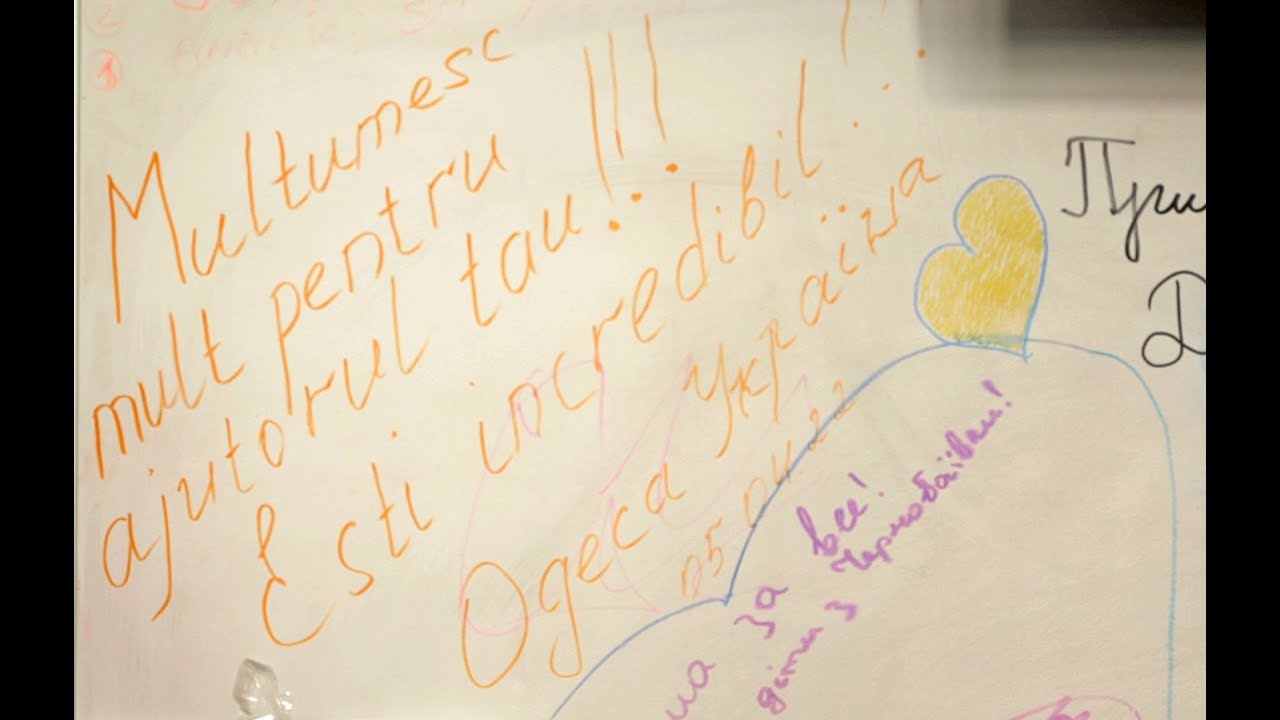 Multumesc
mult pentru
ajutorul tau!!!
Esti incredibil!!!
Одеса Україна
05.04.22
за все!
діти з Чорнобаївки!